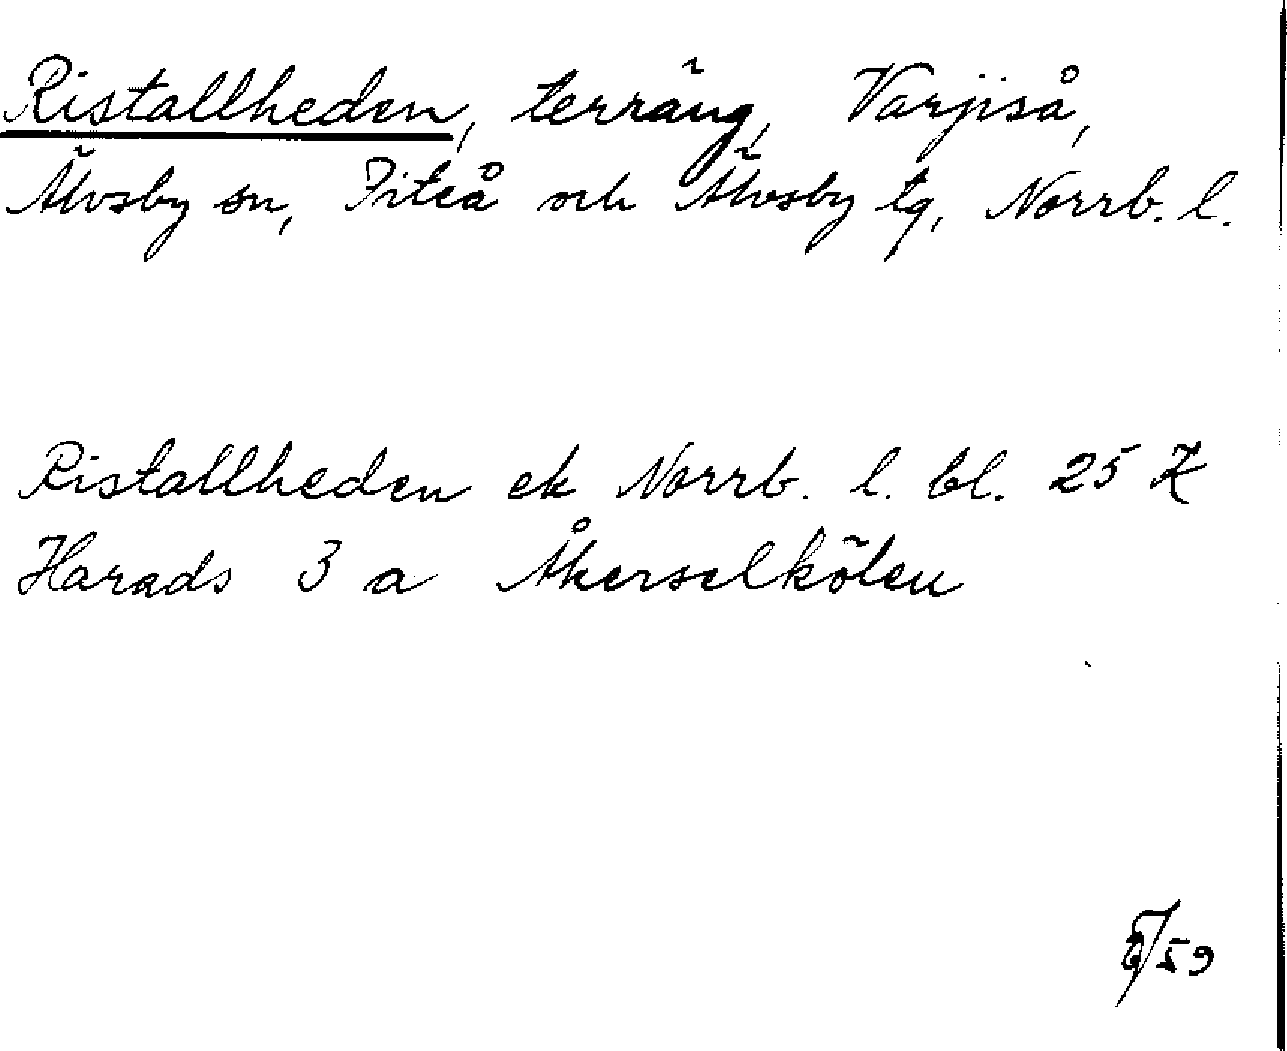 Ristallheden, terräng, Varjiså,
Älvsby sn, Piteå och Älvsby tg, Norrb. l.
Ristallheden ek Norrb. l. bl. 25 K
Harads 3 a Åkerselkölen
/59